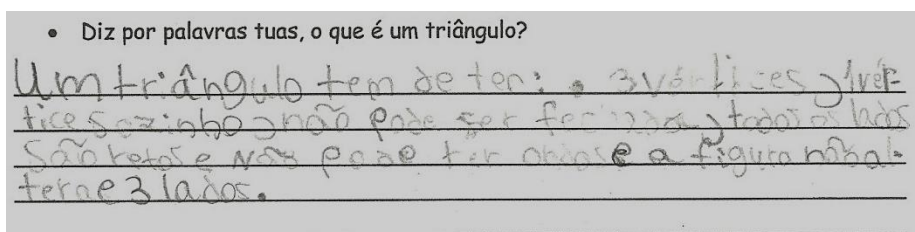 • Diz por palavras tuas, o que é um triângulo?
Um triângulo tem de ter: • 3 vértices, 1 vér-
tice sozinho, não pode ser, todos os lados
são retos e não pode ter e a figura não al-
terna e 3 lados.